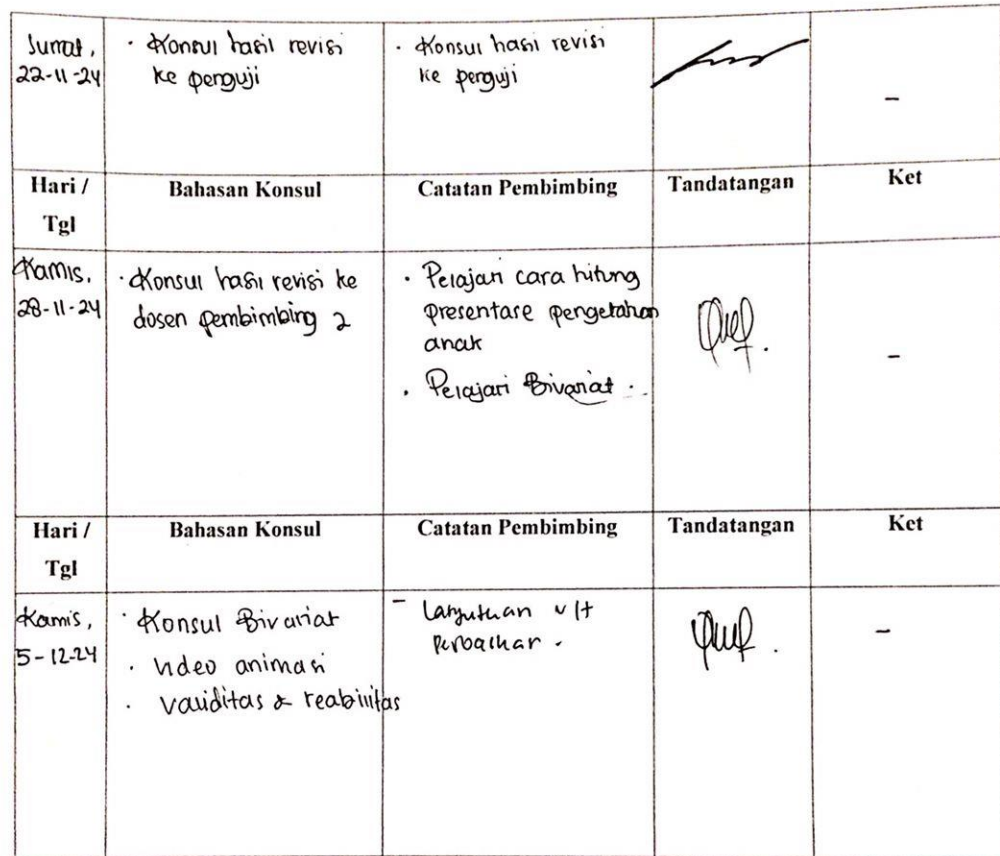 Jumat,
22-11-24
· Konsul hasil revisi
ke penguji
· Konsul hasi revisi
ke penguji
-
Hari /
Tgl
Bahasan Konsul
Catatan Pembimbing
Tandatangan
Ket
Kamis,
28-11-24
· Konsul hasil revisi ke
dosen pembimbing 2
· Pelajari cara hitung
presentase pengetahan
anak
· Pelajari Bivariat
-
Hari /
Tgl
Bahasan Konsul
Catatan Pembimbing
Tandatangan
Ket
Kamis,
5-12-24
· Konsul Bivariat
· Video animasi
· validitas & reabilitas
- Lanjutkan
-